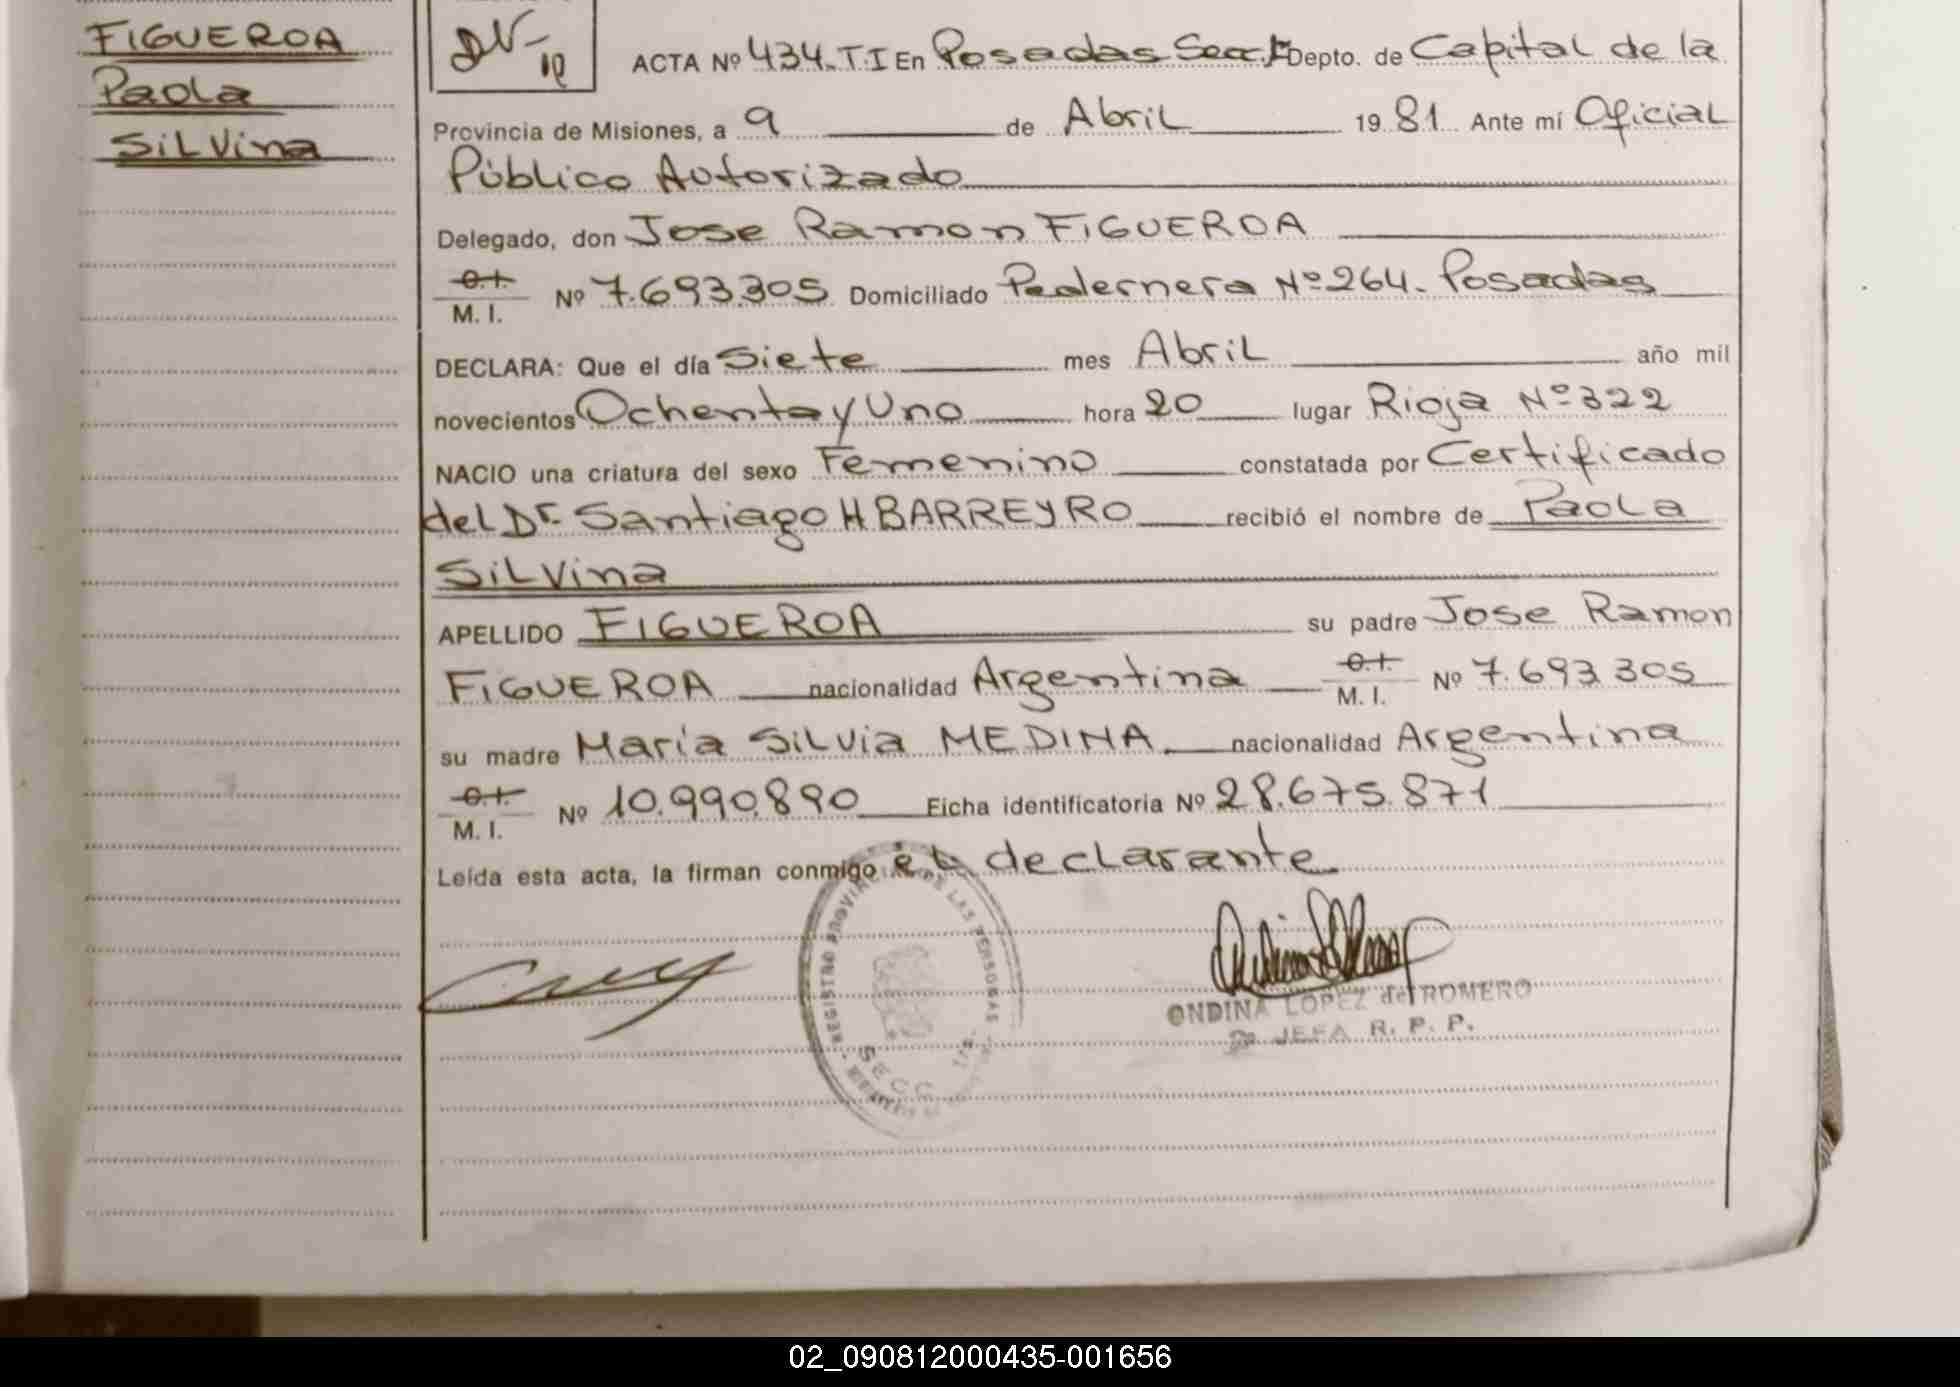 FIGUEROA
Paola
Silvina
ACTA Nº 434. T.I En Posadas Secc. 1ª Depto. de Capital de la
Provincia de Misiones, a 9 de Abril 1981. Ante mí Oficial
Público Autorizado
Delegado, don Jose Ramon FIGUEROA
C.I.
M. I. Nº 7.693.305 Domiciliado Pedernera Nº 264. Posadas
DECLARA: Que el día Siete mes Abril año mil
novecientos Ochenta y Uno hora 20 lugar Rioja Nº 322
NACIO una criatura del sexo Femenino constatada por Certificado
del Dr. Santiago H BARREYRO recibió el nombre de Paola
Silvina
APELLIDO FIGUEROA su padre Jose Ramon
FIGUEROA nacionalidad Argentina C.I. M. I. Nº 7.693.305
su madre María Silvia MEDINA nacionalidad Argentina
C.I.
M. I. Nº 10.990.890 Ficha identificatoria Nº 28.675.871
Leída esta acta, la firman conmigo el declarante
REGISTRO PROVINCIAL DE LAS PERSONAS
SECC. 1ra.
ONDINA LOPEZ de ROMERO
JEFA R. P. P.
02_090812000435-001656